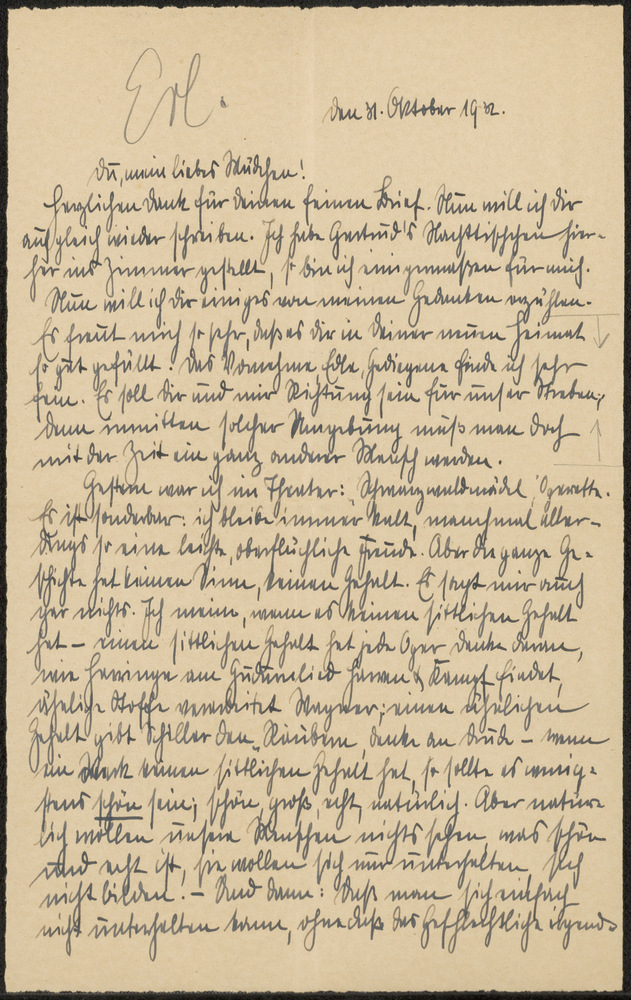 Erl.
den 31. Oktober 1932.
Du, mein liebes Mädchen!
Herzlichen Dank für deinen feinen Brief. Nun will ich dir
auch gleich wieder schreiben. Ich habe Gertrud's Nachttischchen hier-
her ins Zimmer gestellt, so bin ich einigermaßen für mich.
Nun will ich dir einiges von meinen Gedanken erzählen.
Es freut mich so sehr, daß es dir in deiner neuen Heimat
so gut gefällt. Das Vornehme, Edle, Gediegene finde ich sehr
fein. Es soll dir und mir Richtung sein für unser Streben,
denn inmitten solcher Umgebung muß man doch
mit der Zeit ein ganz anderer Mensch werden.
Gestern war ich im Theater: „Schwarzwaldmädel", Operette.
Es ist sonderbar: ich bleibe immer kalt, manchmal aller-
dings so eine leichte, oberflächliche Freude. Aber die ganze Ge-
schichte hat keinen Sinn, keinen Gehalt. Es sagt mir auch
gar nichts. Ich meine, wenn es keinen sittlichen Gehalt
hat – einen sittlichen Gehalt hat jede Oper, denke daran,
wie am Gudrunlied & Kampf findet,
ähnliche Stoffe verarbeitet Wagner; einen ähnlichen
Gehalt gibt Schiller den „Räubern, denke an – wenn
ein Werk keinen sittlichen Gehalt hat, so sollte es wenig-
stens schön sein; schön, groß, echt, natürlich. Aber natür-
lich wollen unsere Menschen nichts sehen, was schön
und echt ist, sie wollen sich nur unterhalten, sich
nicht bilden. – Und dann: Daß man sich einfach
nicht unterhalten kann, ohne daß das Geschlechtliche irgend-